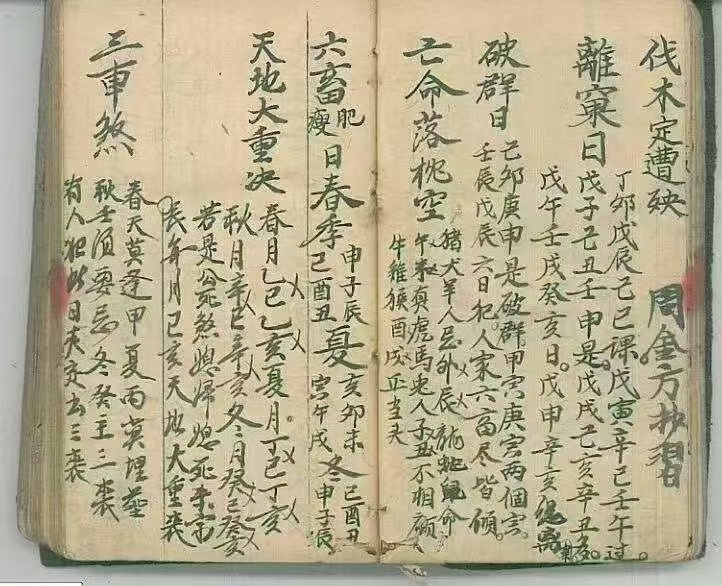 伐木定遭殃 周金方抄習
離窠日 丁卯戊辰己巳課戊寅辛巳壬午过
戊子己丑壬申是戊戌己亥辛丑多
戊午壬戌癸亥日戊申辛亥總离窠
破群日 己卯庚申是破群甲寅庚寅两個寅
壬辰戊辰六日犯人家六畜尽皆傾
亡命落枕空 猪犬羊人忌卯辰龍蛇鼠命
午未寅虎馬兔人子丑不相顧
牛雞猴酉戌正当夫
六畜肥瘦日春季 申子辰 己酉丑 夏 亥卯未 寅午戌 冬 己酉丑 申子辰
天地大重决 春月乙巳乙亥夏月丁巳丁亥
秋月辛巳辛亥冬月癸巳癸亥
若是公死煞媳婦媳死
長年月己亥天地大重喪
三車煞 春天莫逢甲夏丙莫埋葬
秋壬須要忌冬癸主三喪
有人犯此日去三喪